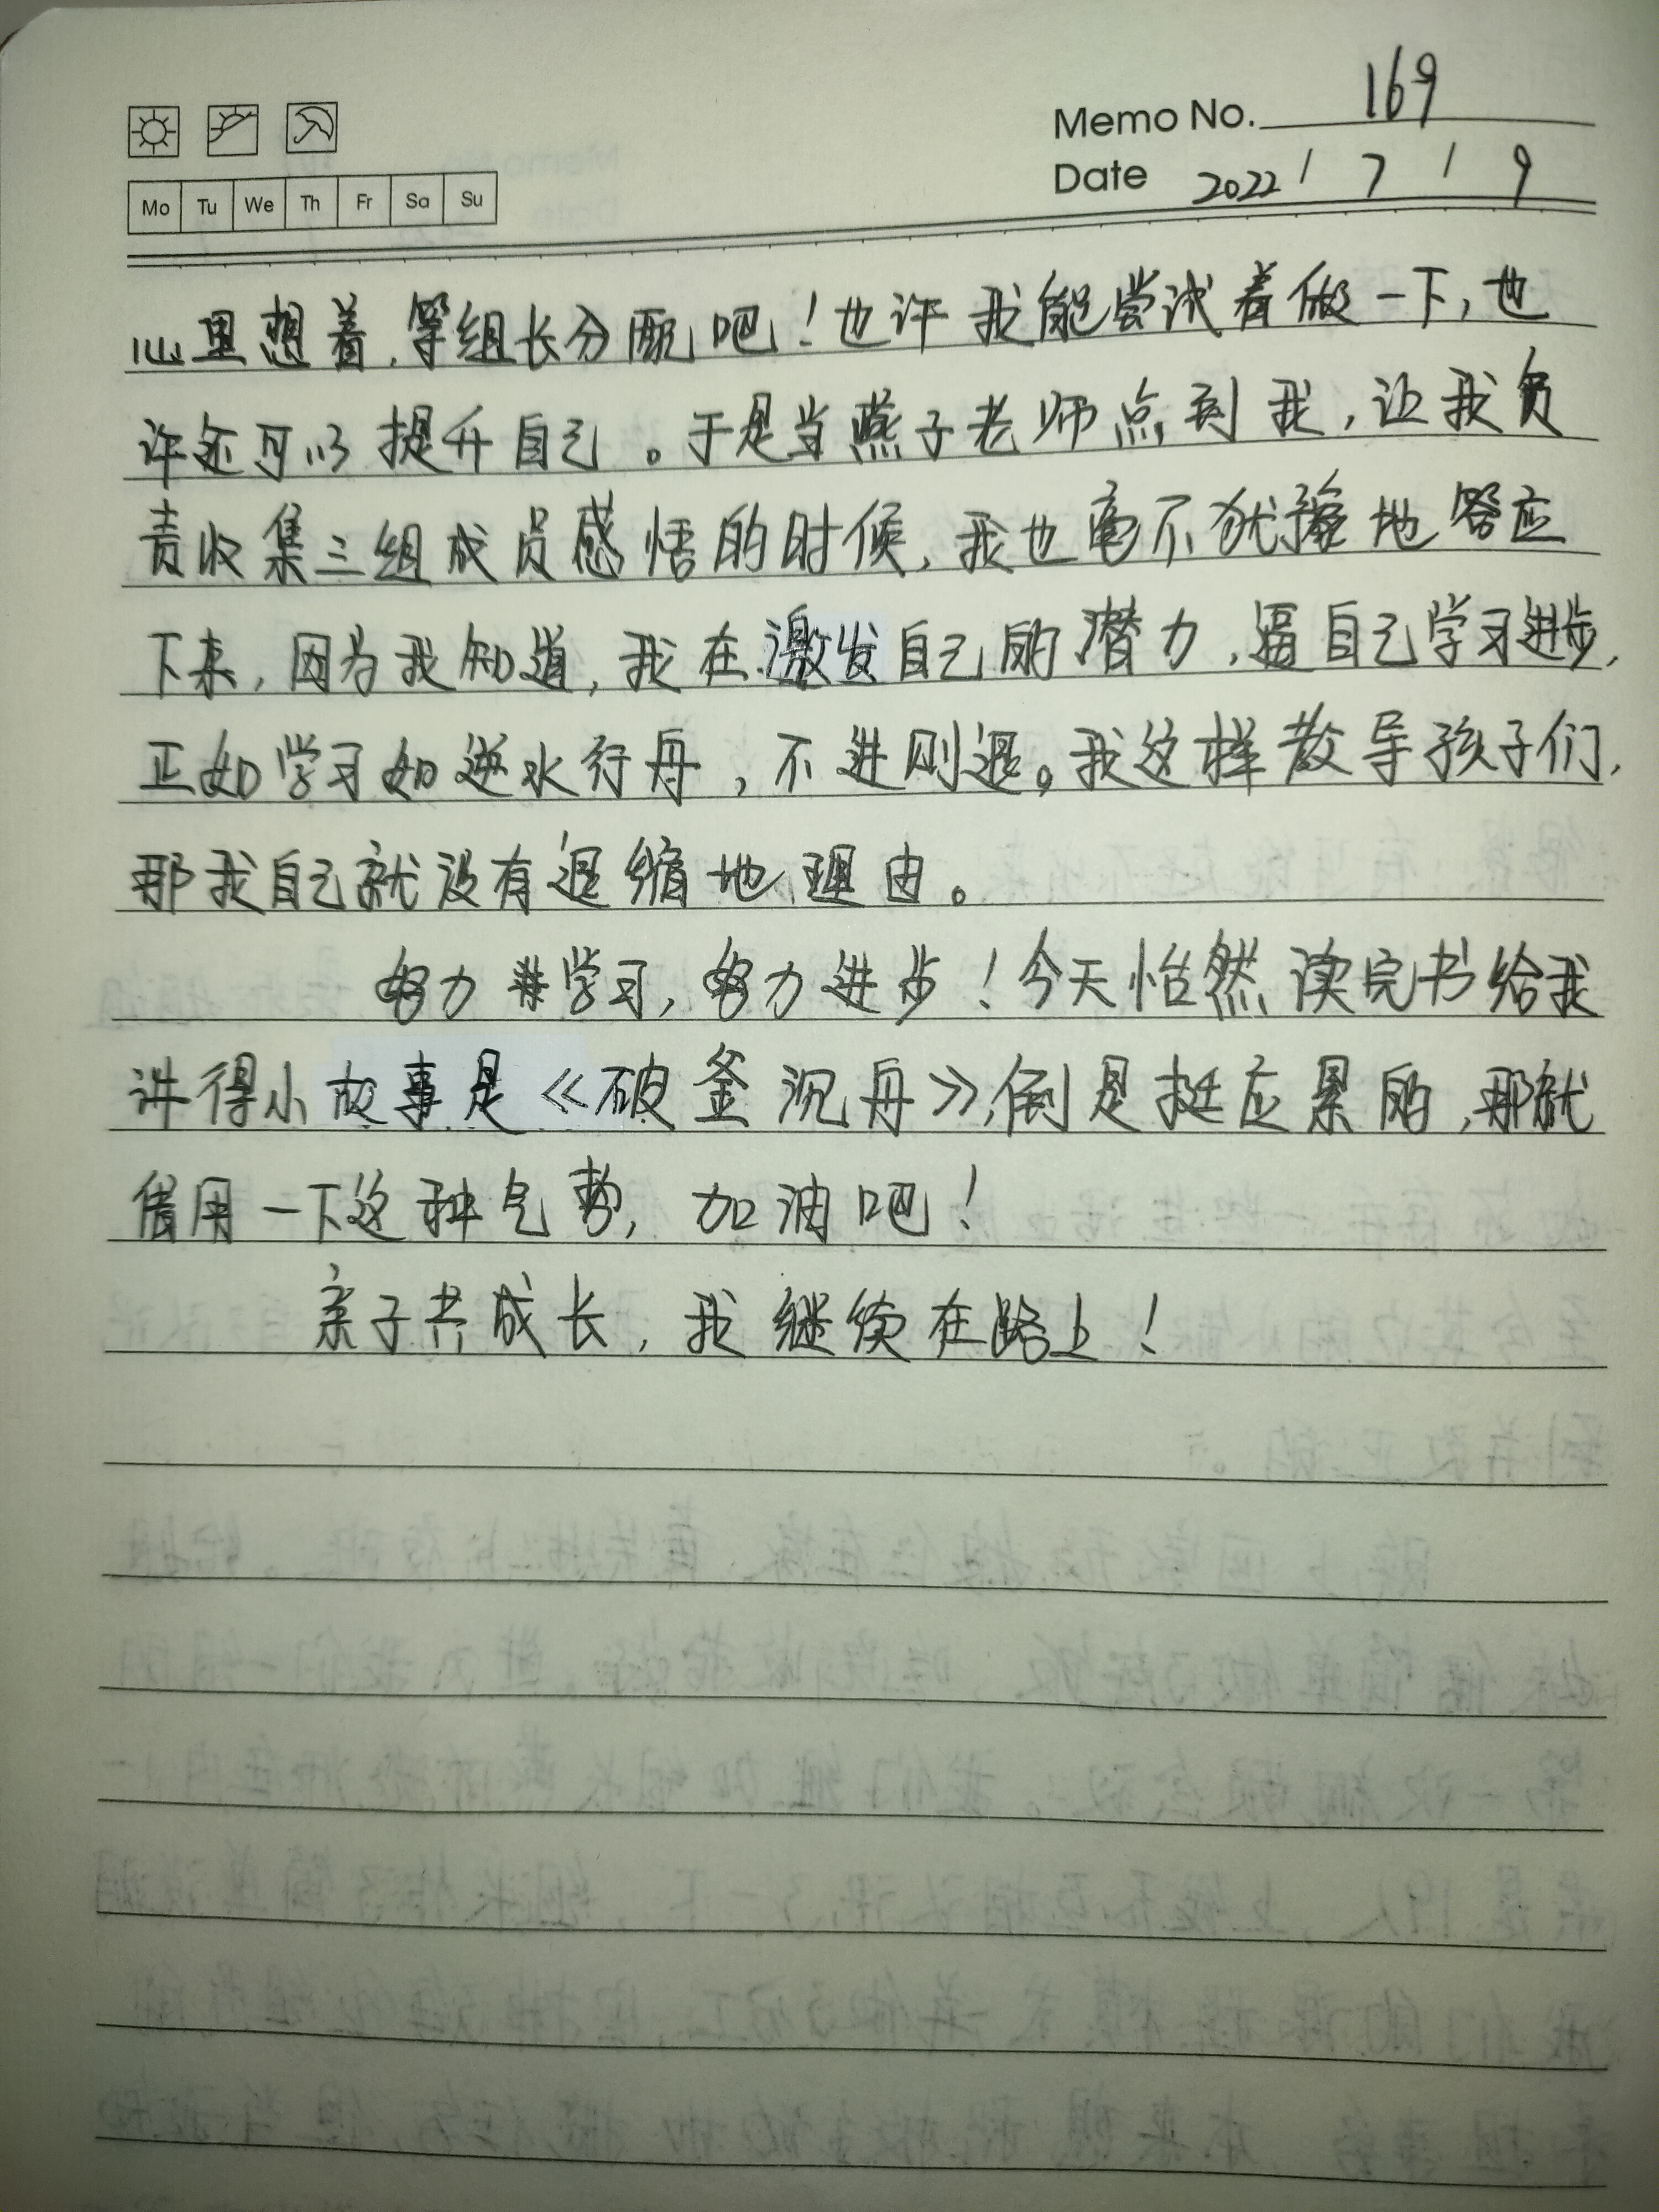 Memo No. 169
Mo Tu We Th Fr Sa Su
Date 2022 / 7 / 9
心里想着,等组长分配吧!也许我能尝试着做一下,也
许还可以提升自己。于是当燕子老师点到我,让我负
责收集三组成员感悟的时候,我也毫不犹豫地答应
下来,因为我知道,我在激发自己的潜力,逼自己学习进步,
正如学习如逆水行舟,不进则退。我这样教导孩子们,
那我自己就没有退缩地理由。
努力学习,努力进步!今天怡然读完书给我
讲得小故事是《破釜沉舟》,倒是挺应景的,那就
借用一下这种气势,加油吧!
亲子共成长,我继续在路上!